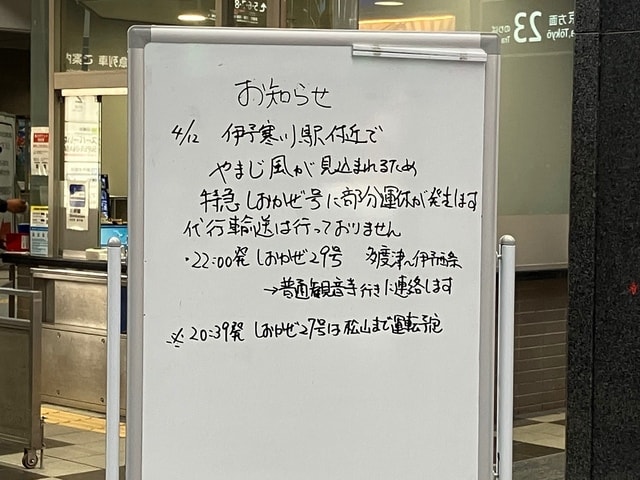 お知らせ
4/12 伊予寒川駅付近で
やまじ風が見込まれるため
特急しおかぜ号に部分運休が発生します
代行輸送は行っておりません
・22:00発 しおかぜ29号 多度津〜伊予西条
→普通観音寺行きに連絡します
※20:39発 しおかぜ27号は松山まで運転予定
23 のりば
急列車ご案内